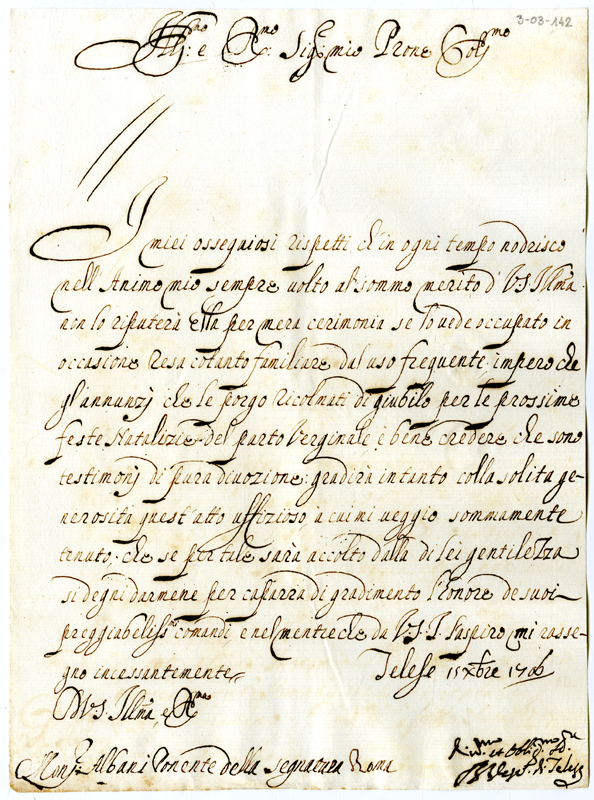 3-03-142
Ill:mo e R:mo Sig:re mio Prone Col:mo
I miei ossequiosi rispetti ch'in ogni tempo nodrisco
nell'Animo mio sempre volto al sommo merito d'V.S. Illma
non lo riputerà ella per mera cerimonia se lo vede occupato in
occasione resa cotanto familiare dal uso frequente; impero che
gl'annunzj che le porgo ricolmati di giubilo per le prossime
feste Natalizie del parto Verginale è bene credere che sono
testimonj di pura divozione: gradirà intanto colla solita ge-
nerosità quest'atto uffizioso à cui mi veggio sommamente
tenuto, che se per tale sarà accolto dalla di Lei gentilezza
si degni darmene per caparra di gradimento l'honore de suoi
preggiabeliss:mi comandi e nel mentre che da V.S.I. l'aspiro, mi rasse-
gno incessantemente
Telese 15 Xbre 1706
D V.S. Illma e Rma
Mons:r Albani Ponente della Segnatura Roma
Div:mo et Obblig:mo
di Telese